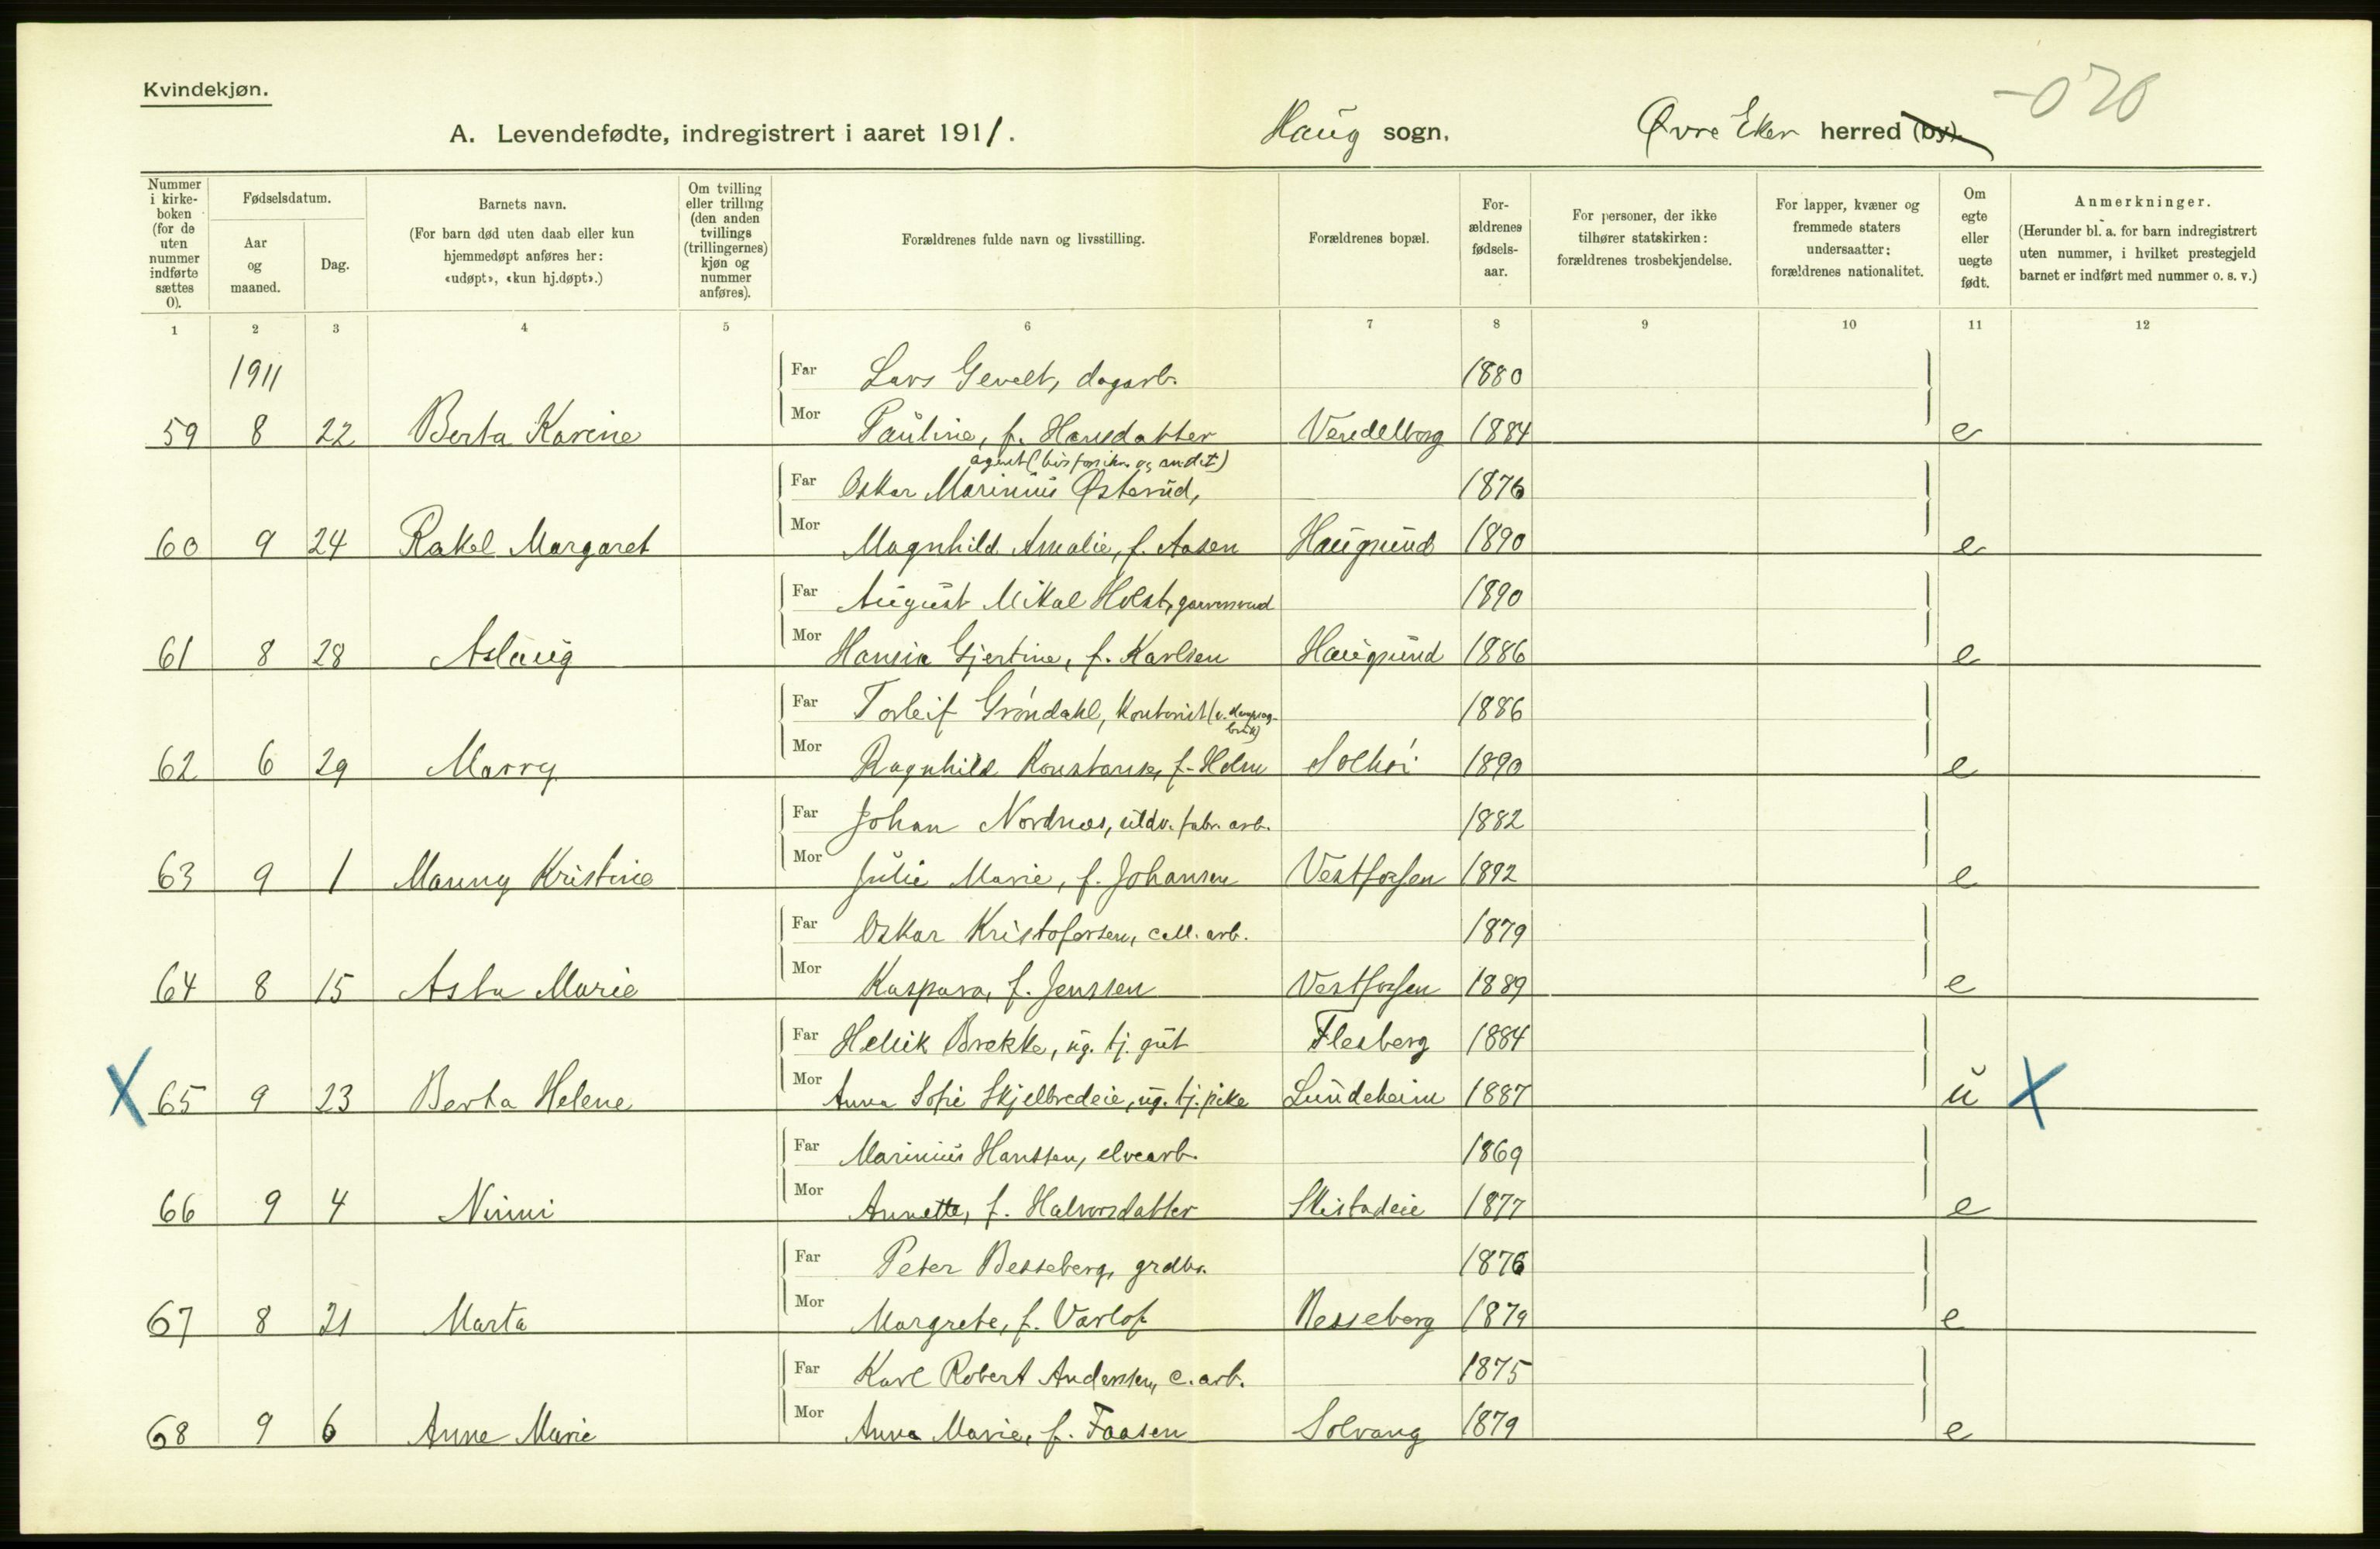 Kvindekjøn.
-070
A. Levendefødte, indregistrert i aaret 1911. Haug sogn. Øvre Eker herred (by).
Nummer i kirkeboken (for de uten nummer indførte sættes 0).
Fødselsdatum.
Aar og maaned.
Dag.
Barnets navn.
(For barn død uten daab eller kun hjemmedøpt anføres her: «udøpt», «kun hj.døpt».)
Om tvilling eller trilling (den anden tvillings (trillingernes) kjøn og nummer anføres).
Forældrenes fulde navn og livsstilling.
Forældrenes bopæl.
Forældrenes fødselsaar.
For personer, der ikke tilhører statskirken: forældrenes trosbekjendelse.
For lapper, kvæner og fremmede staters undersaatter: forældrenes nationalitet.
Om egte eller uegte født.
Anmerkninger.
(Herunder bl. a. for barn indregistrert uten nummer, i hvilket prestegjeld barnet er indført med nummer o. s. v.)
1 2 3 4 5 6 7 8 9 10 11 12
1911 Far Lars Gevelt, dagarb. 1880
59 8 22 Berta Karine Mor Pauline, f. Hansdatter Vendelborg 1884 e
agent (livsforsikr. og andet)
Far Oskar Marinius Østerud, 1876
60 9 24 Rakel Margaret Mor Magnhild Amalie, f. Aasen Haugsund 1890 e
Far August Mikal Holst, garversvend 1890
61 8 28 Aslaug Mor Hansia Gjertine, f. Karlsen Haugsund 1886 e
Far Torleif Grøndahl, kontorist 1886
62 6 29 Marry Mor Ragnhild Konstanse, f. Holm Solhøi 1890 e
Far Johan Nordnæs, utdv. fabr. arb. 1882
63 9 1 Manny Kristine Mor Julie Marie, f. Johansen Vestfossen 1892 e
Far Oskar Kristofersen, cell. arb. 1879
64 8 15 Asta Marie Mor Kaspara, f. Jenssen Vestfossen 1889 e
Far Hellik Brekke, ug. tj. gut Flesberg 1884
X 65 9 23 Berta Helene Mor Anna Sofie Skjelbredeie, ug. tj. pike Lundeheim 1887 u X
Far Marinius Hanssen, elvearb. 1869
66 9 4 Ninni Mor Annette, f. Halvorsdatter Skistadeie 1877 e
Far Peter Besseberg, grdbr. 1876
67 8 21 Marta Mor Margrete, f. Varlo Besseberg 1879 e
Far Karl Robert Anderssen, c. arb. 1875
68 9 6 Anne Marie Mor Anna Marie, f. Faasen Solvang 1879 e